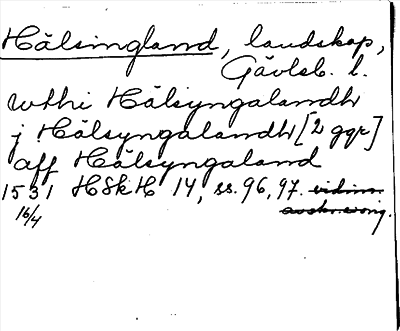 Hälsingland, landskap,
Gävleb. l.
wthi Hälsyngalandh
j Hälsyngalandh [2 ggr]
aff Hälsyngaland
1531 HSkH 14, ss. 96, 97.
16/4